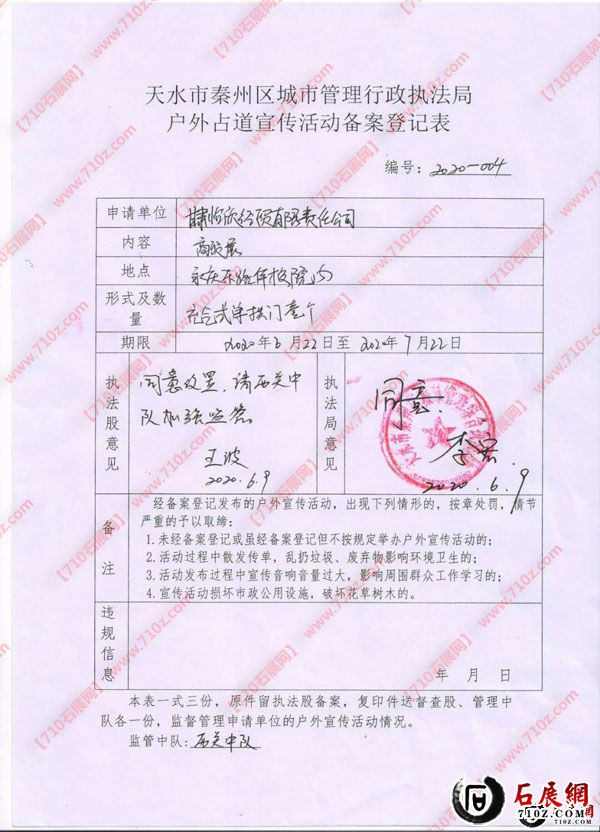 天水市秦州区城市管理行政执法局
户外占道宣传活动备案登记表
编号: 2020-004
申请单位 甘肃怡欣经贸有限责任公司
内容
地点
形式及数量 充气式单拱门壹个
期限 2020年6月22日至2020年7月22日
执法股意见 同意设置,请西关中
队加强监管
王波
2020.6.9
执法局意见 同意.
李
2020.6.9
备注 经备案登记发布的户外宣传活动,出现下列情形的,按章处罚,情节
严重的予以取缔:
1.未经备案登记或虽经备案登记但不按规定举办户外宣传活动的;
2.活动过程中散发传单,乱扔垃圾、废弃物影响环境卫生的;
3.活动发布过程中宣传音响音量过大,影响周围群众工作学习的;
4.宣传活动损坏市政公用设施,破坏花草树木的。
违规信息
年 月 日
本表一式三份,原件留执法股备案,复印件送督查股、管理中
队各一份,监督管理申请单位的户外宣传活动情况。
监管中队: 西关中队
【710石展网】www.710z.com
石展網
710Z.COM